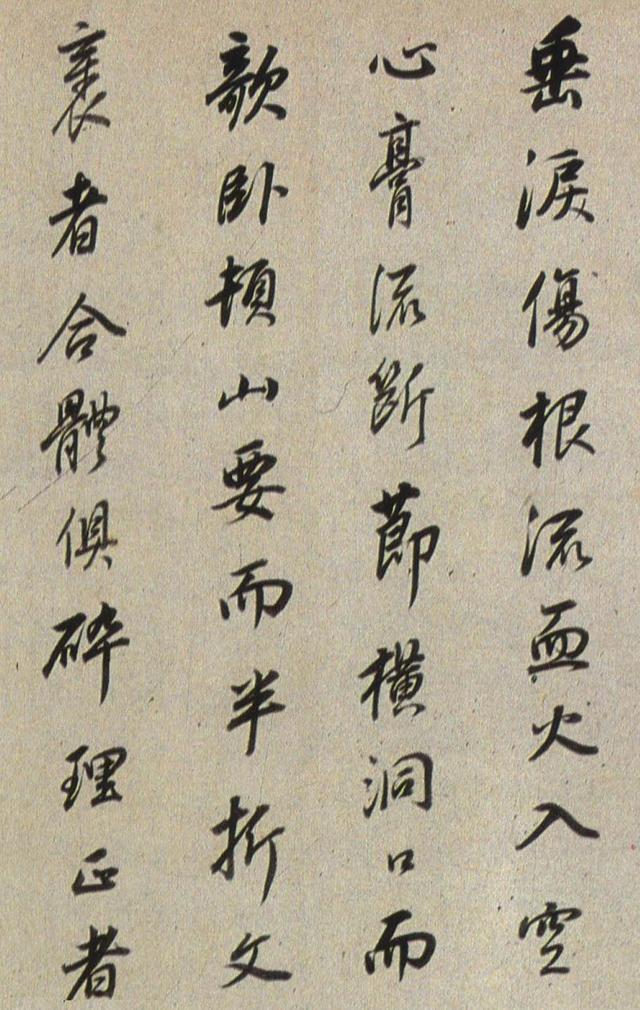 垂淚傷根流血火入空
心膏流斷節橫洞口而
欹臥頓山要而半折文
衺者合體俱碎理正者